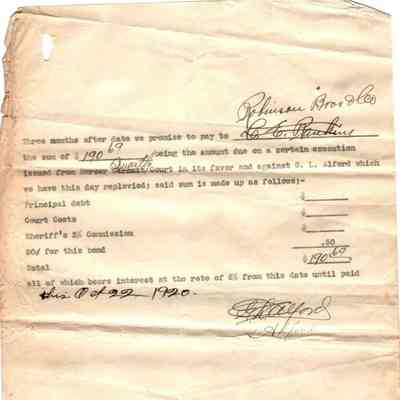 Robinson Bros & Co
Three months after date we promise to pay to L. E. Rankins
the sum of $ 190 69 being the amount due on a certain execution
issued from Mercer Quarterly Court in its favor and against G. L. Alford which
we have this day replevied; said sum is made up as follows;-
Principal debt $
Court Costs $
Sheriff's 3% Commission $
50¢ for this bond .50
Total $ 190 69
all of which bears interest at the rate of 6% from this date until paid
this Oct 22 1920.
G L Alford